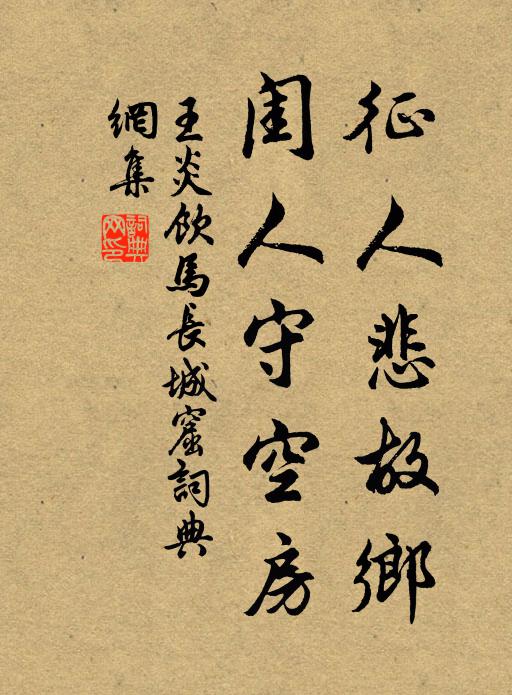 征人悲故鄉
閨人守空房
王炎飲馬長城窟詞典
網集
詞典
网印